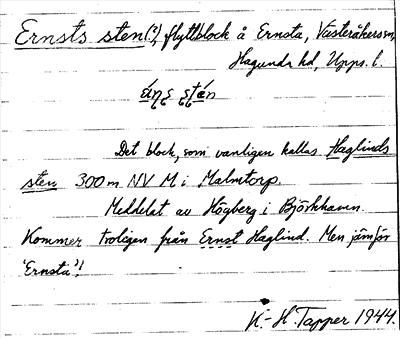 Ernsts sten(?), flyttblock å Ernsta, Västeråkers sn,
Hagunda hd, Upps. l.
Det block, som vanligen kallas Haglunds
sten 300 m NV M i Malmtorp.
Meddelat av Högberg i Björkhamn.
Kommer troligen från Ernst Haglind. Men jämför
'Ernsta'?!
K.-H. Tapper 1944.